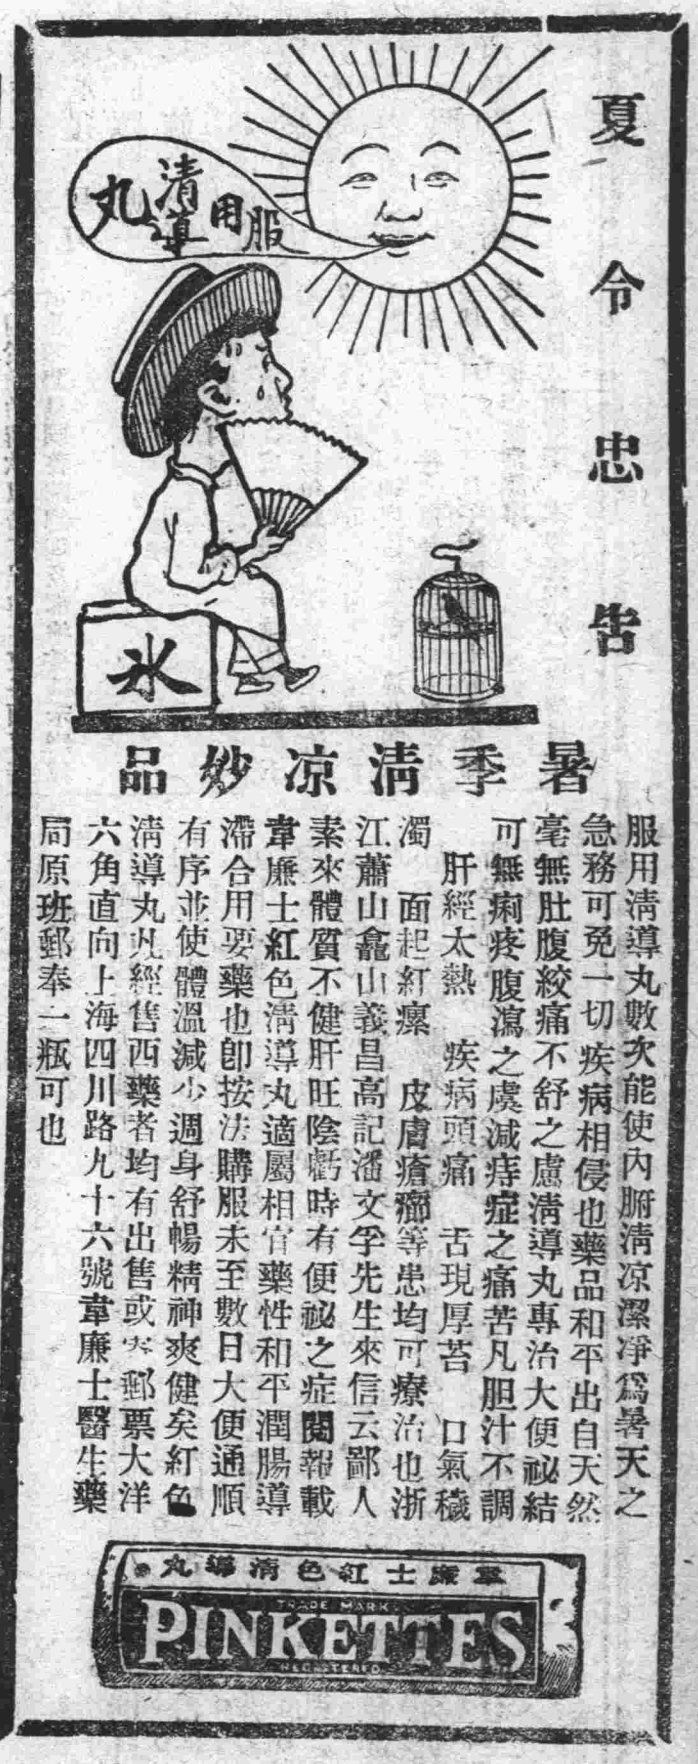 夏令忠告
服用清導丸
氷
暑季清凉妙品
服用清導丸數次能使內腑清凉潔凈爲暑天之
急務可免一切疾病相侵也藥品和平出自天然
毫無肚腹絞痛不舒之慮清導丸專治大便祕結
可無痢疼腹瀉之虞減痔症之痛苦凡胆汁不調
肝經太熱 疾病頭痛 舌現厚苔 口氣穢
濁 面起紅瘰 皮膚瘡癤等患均可療治也浙
江蕭山龕山義昌高記潘文孚先生來信云鄙人
素來體質不健肝旺陰虧時有便祕之症閱報載
韋廉士紅色清導丸適屬相宜藥性和平潤腸導
滯合用要藥也卽按法購服未至數日大便通順
有序並使體溫減少週身舒暢精神爽健矣紅色
清導丸凡經售西藥者均有出售或寄郵票大洋
六角直向上海四川路九十六號韋廉士醫生藥
局原班郵奉一瓶可也
韋廉士紅色清導丸
TRADE MARK
PINKETTES
REGISTERED